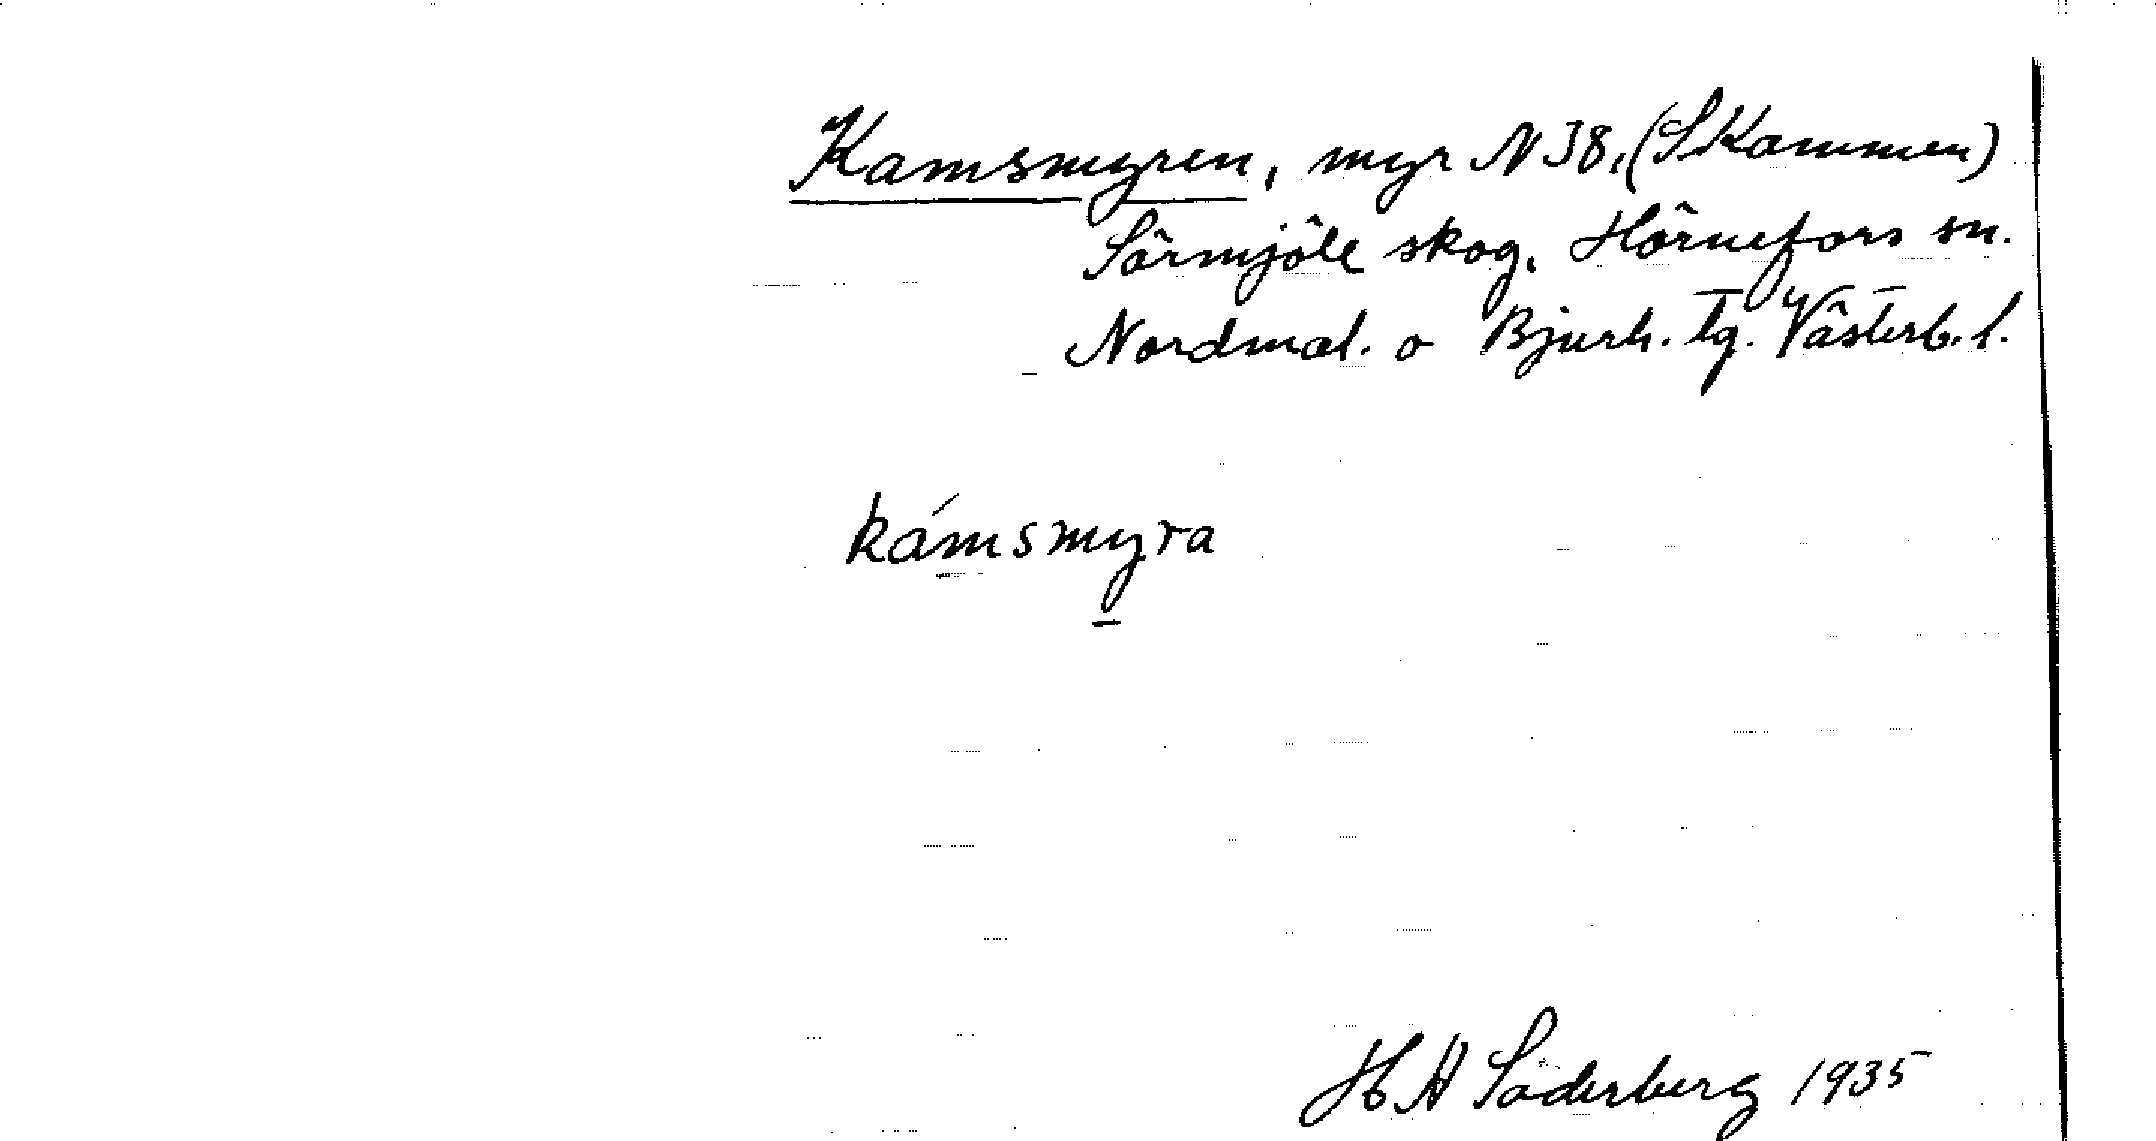 Kamsmyren, myr N 38, (S Kammen)
Sörmjöle skog, Hörnefors sn.
Nordmal. o Bjurh. tg. Västerb. l.
kámsmyra
H A Söderberg 1935